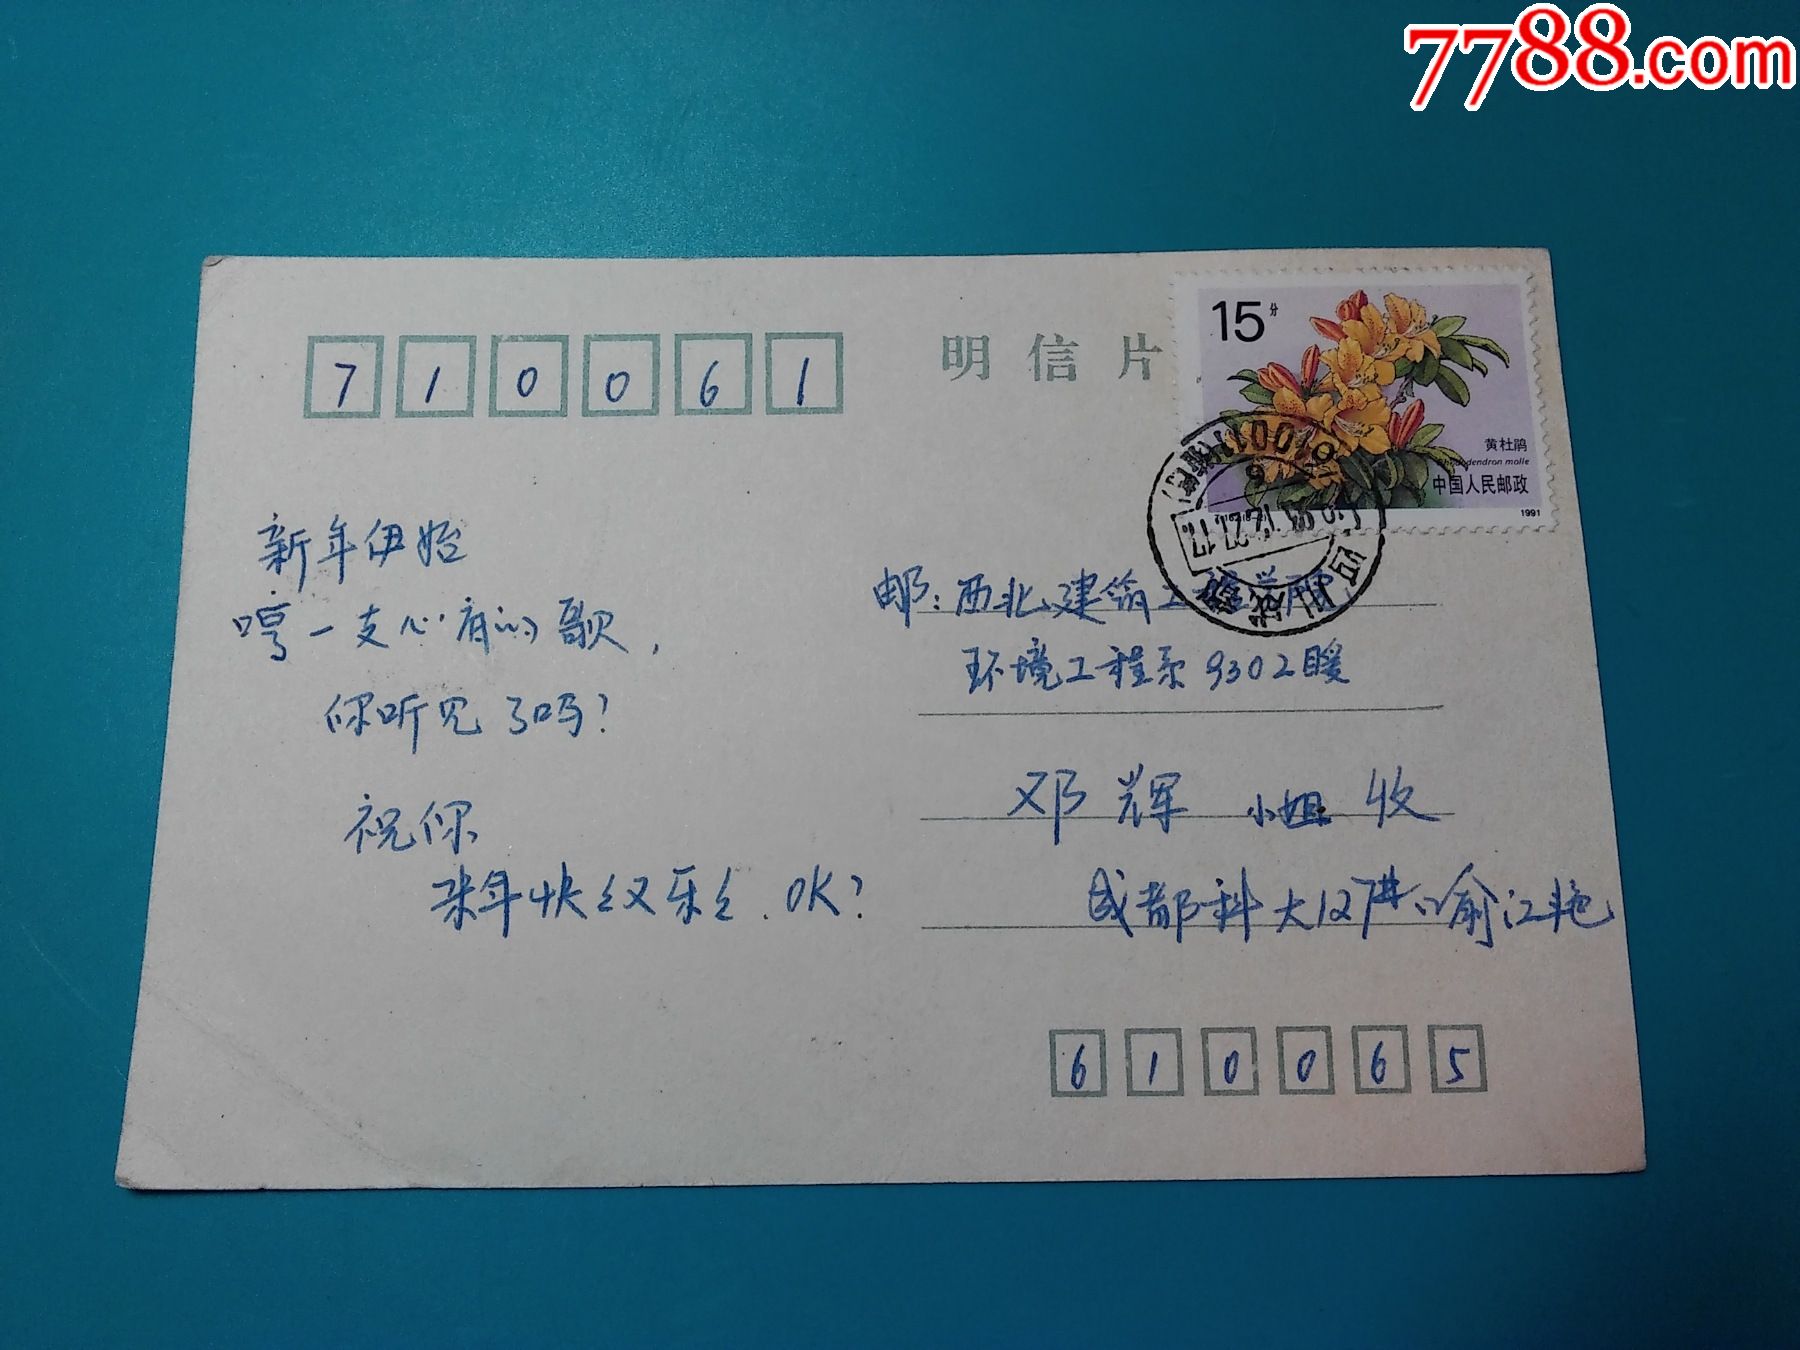 7788.com
710061
明信片
15分
黄杜鹃
Rhododendron molle
中国人民邮政
1991
四川成都
93.12.21.17
新年伊始
哼一支心有的歌,
你听见了吗?
祝你
来年快红乐红.OK?
邮:西北建筑工程学院
环境工程系9302暖
邓辉小姐收
成都科大12#俞江艳
610065